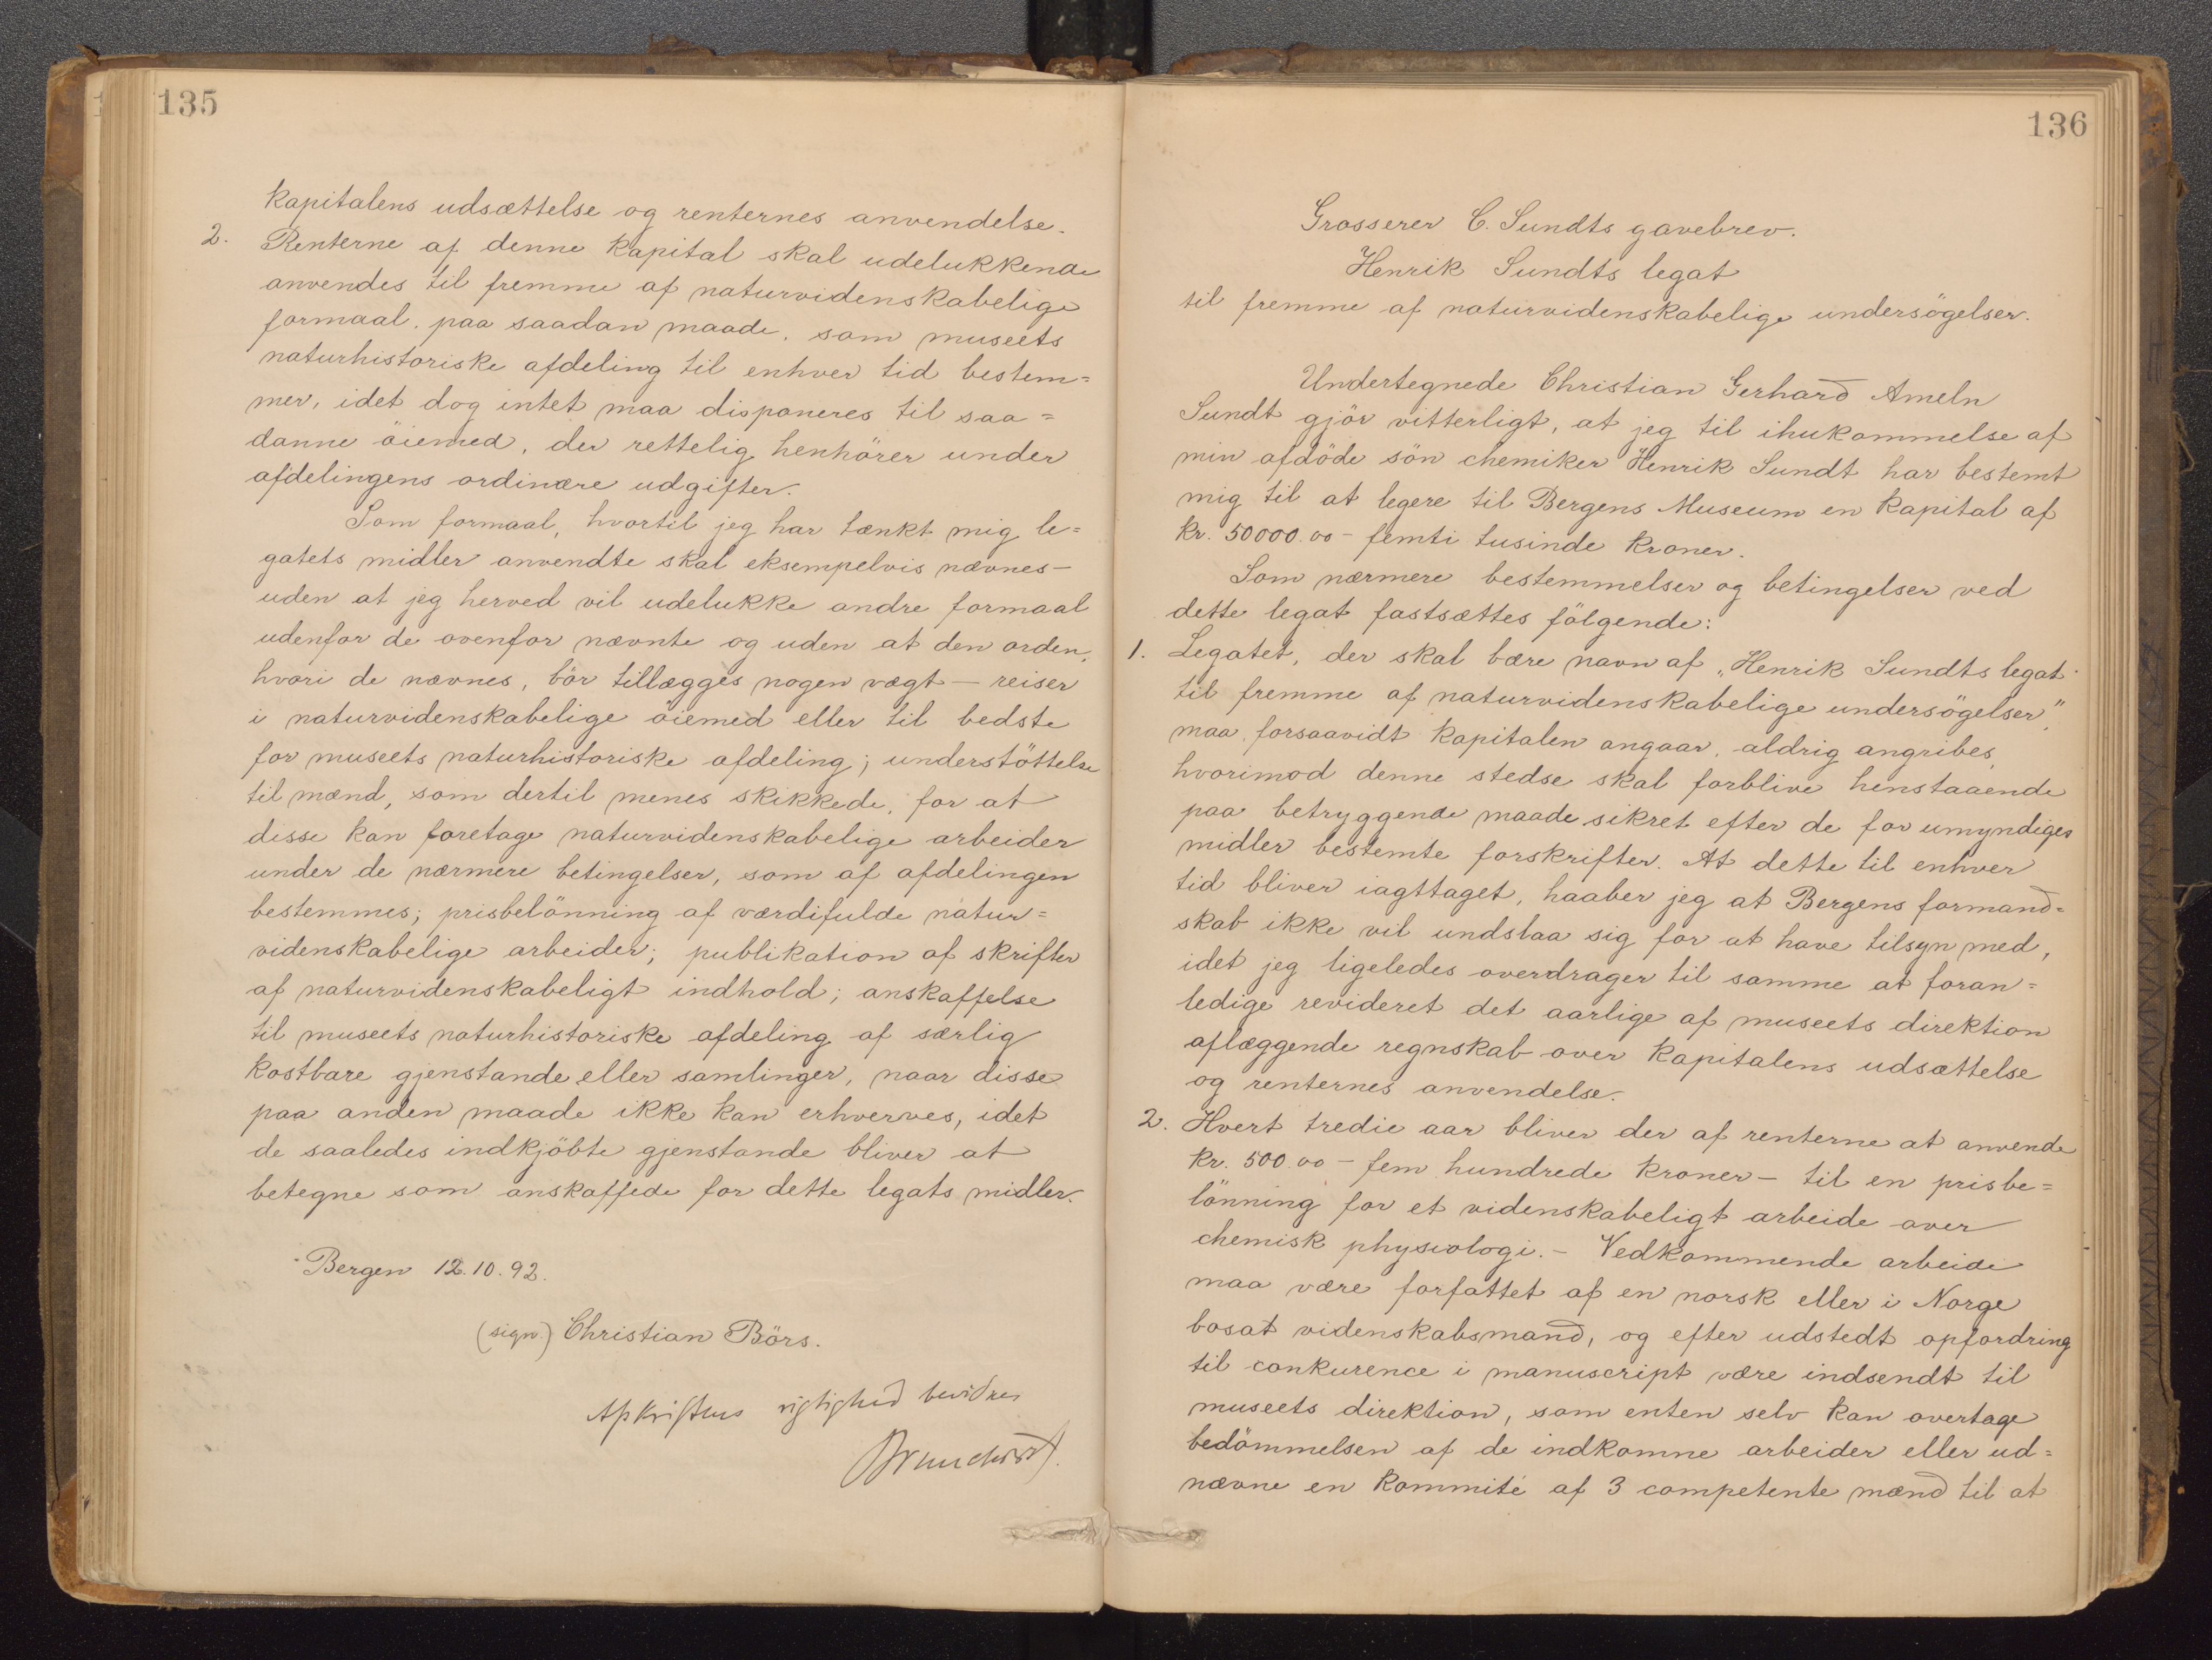 135
kapitalens udsættelse og renternes anvendelse.
2. Renterne af denne kapital skal udelukkende
anvendes til fremme af naturvidenskabelige
formaal. paa saadan maade, som museets
naturhistoriske afdeling til enhver tid bestem=
mer, idet dog intet maa disponeres til saa=
danne öiemed, der rettelig henhörer under
afdelingens ordinære udgifter.
Som formaal, hvortil jeg har tænkt mig le=
gatets midler anvendte skal eksempelvis nævnes—
uden at jeg herved vil udelukke andre formaal
udenfor de ovenfor nævnte og uden at den orden,
hvori de nævnes, bör tillægges nogen vægt — reiser
i naturvidenskabelige öiemed eller til bedste
for museets naturhistoriske afdeling; understöttelse
til mænd, som dertil menes skikkede, for at
disse kan foretage naturvidenskabelige arbeider
under de nærmere betingelser, som af afdelingen
bestemmes; prisbelönning af værdifulde natur=
videnskabelige arbeider; publikation af skrifter
af naturvidenskabeligt indhold; anskaffelse
til museets naturhistoriske afdeling af særlig
kostbare gjenstande eller samlinger, naar disse
paa anden maade ikke kan erhverves, idet
de saaledes indkjöbte gjenstande bliver at
betegne som anskaffede for dette legats midler.
Bergen 12.10.92.
(sign.) Christian Börs.
Afskriftens rigtighed bevidnes
136
Grosserer C. Sundts gavebrev.
Henrik Sundts legat
til fremme af naturvidenskabelige undersögelser.
Undertegnede Christian Gerhard Ameln
Sundt gjör vitterligt, at jeg til ihukommelse af
min afdöde sön chemiker Henrik Sundt har bestemt
mig til at legere til Bergens Museum en kapital af
kr. 50000.00 – femti tusinde kroner.
Som nærmere bestemmelser og betingelser ved
dette legat fastsættes fölgende:
1. Legatet, der skal bære navn af „Henrik Sundts legat
til fremme af naturvidenskabelige undersögelser”,
maa, forsaavidt kapitalen angaar, aldrig angribes,
hvorimod denne stedse skal forblive henstaaende
paa betryggende maade sikret efter de for umyndiges
midler bestemte forskrifter. At dette til enhver
tid bliver iagttaget, haaber jeg at Bergens formand=
skab ikke vil undslaa sig for at have tilsyn med,
idet jeg ligeledes overdrager til samme at foran=
ledige revideret det aarlige af museets direktion
aflæggende regnskab over kapitalens udsættelse
og renternes anvendelse.
2. Hvert tredie aar bliver der af renterne at anvende
kr. 500.00 – fem hundrede kroner – til en prisbe=
lönning for et videnskabeligt arbeide over
chemisk physiologi. – Vedkommende arbeide
maa være forfattet af en norsk eller i Norge
bosat videnskabsmand, og efter udstedt opfordring
til conkurence i manuscript være indsendt til
museets direktion, som enten selv kan overtage
bedömmelsen af de indkomne arbeider eller ud=
nævne en kommité af 3 competente mænd til at